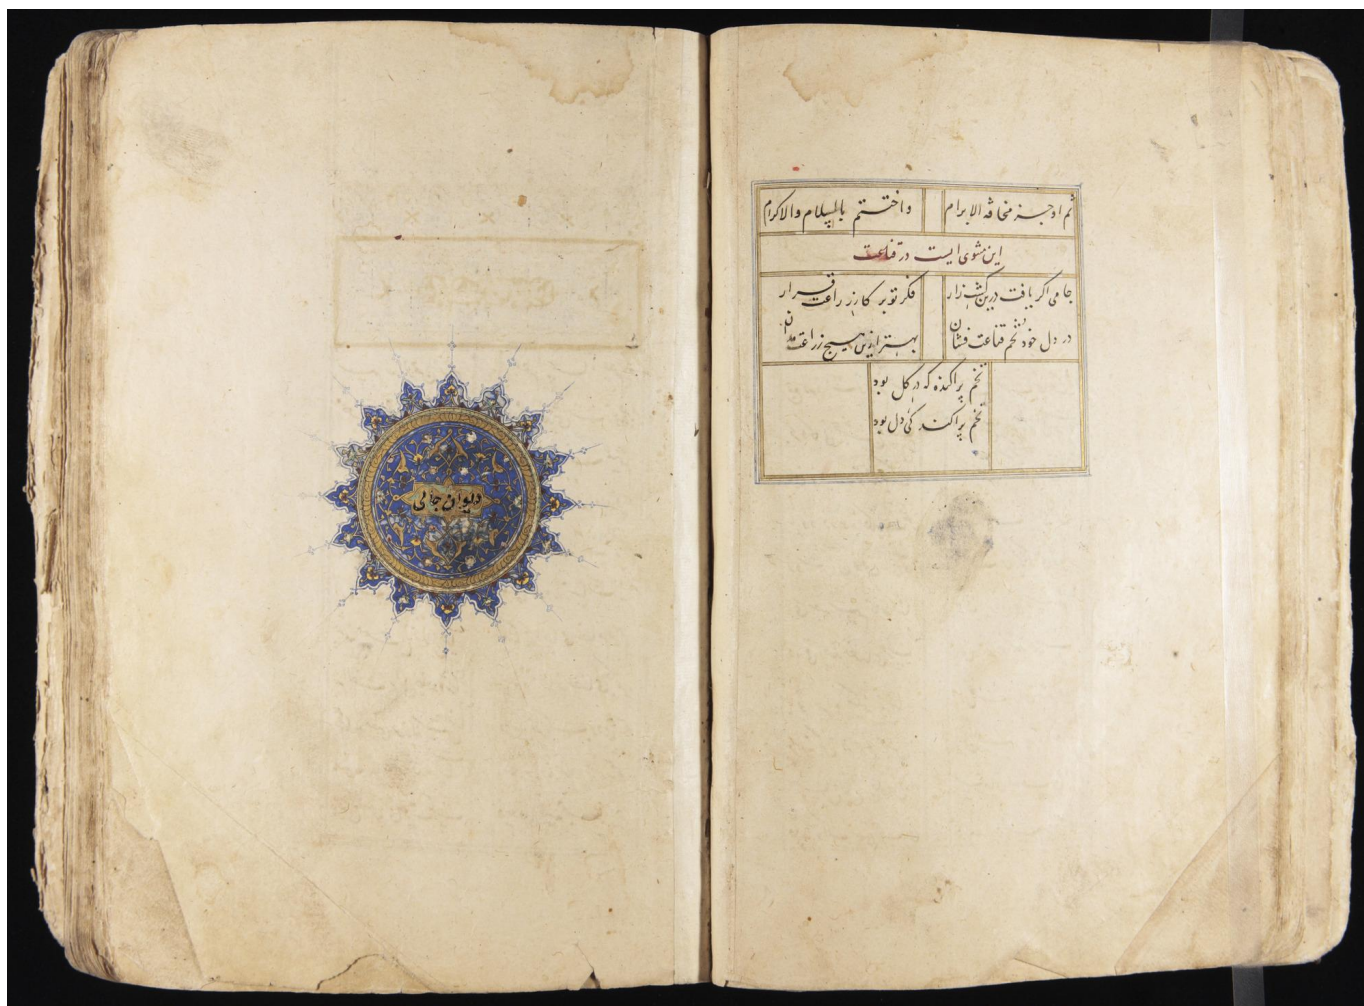 ثم اوجز مخافه الابرام واختتم بالسلام والاکرام
این مثنوی ایست در قناعت
جامی اکر یافت درین کشت زار فکر تو بر کار زراعت قرار
در دل خود تخم قناعت فشان بهتر ازین هیچ زراعت مدان
تخم پراکنده که در کل بود
تخم پراکند کی دل بود
دیوان جامی